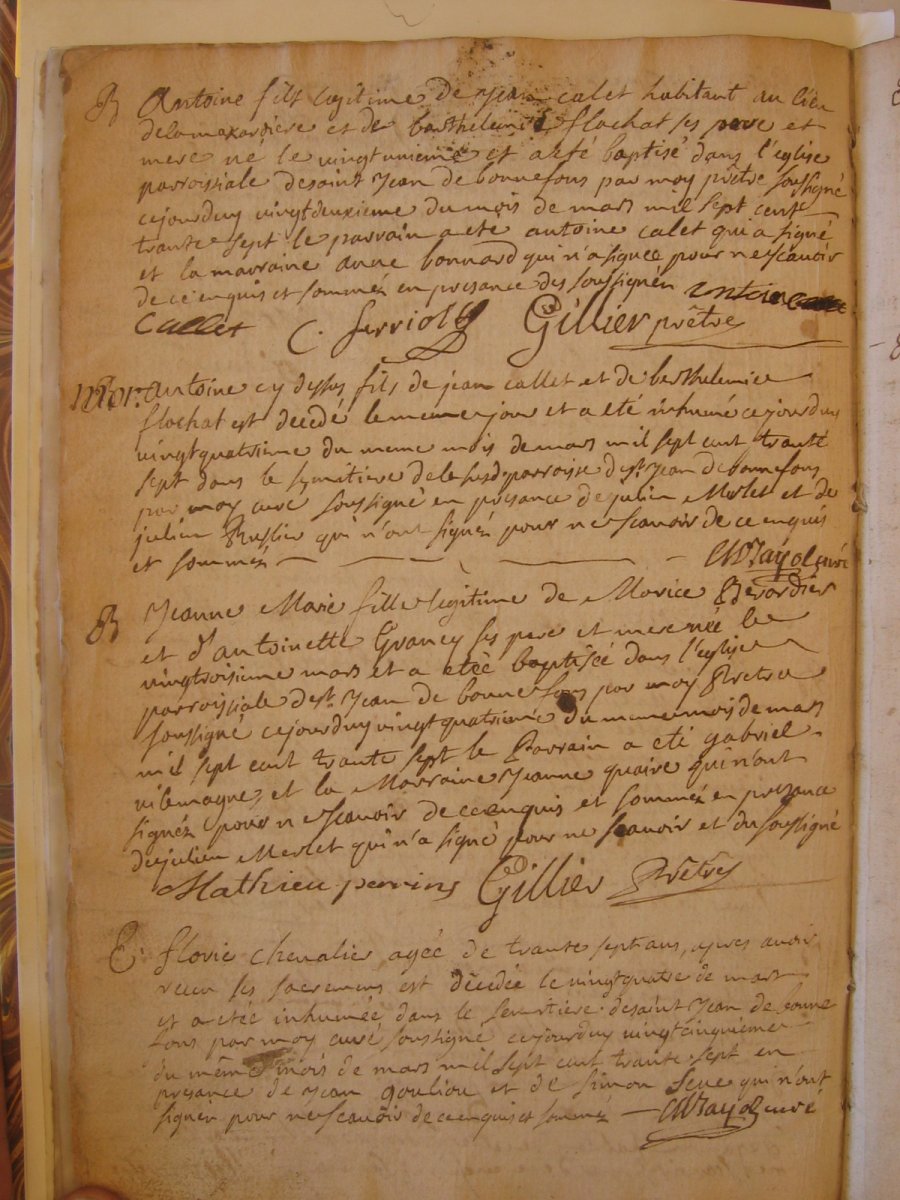 B Antoine fils legitime de Jean calet habitant au lieu
delamaxardiere et de barthelemie flochat ses pere et
mere né le vingtunieme et a eté baptisé dans l'eglise
parroissiale desaint Jean de bonnefons par moy prêtre soussigné
cejourduy vingtdeuxieme du mois de mars mil sept cent
trante sept le parrain a eté antoine calet qui a signé
et la marraine anne bonnard qui n'a signée pour ne scavoir
de ce enquis et sommés en presance des soussignés antoine
Callet C. ferriol Gillier prêtre
Mor. antoine cy dessus fils de jean callet et de barthelemie
flochat est decedé le meme jour et a eté inhumé cejourduy
vingtquatrieme du meme mois de mars mil sept cent trante
sept dans le symitiere de la susd. parroisse de st. Jean de bonnefons
par moy curé soussigné en presance de julien Merlet et de
julien Russier qui n'ont signés pour ne scavoir de ce enquis
et sommés curé
B Jeanne Marie fille legitime de Morice Berardier
et d'antoinette Grancy ses pere et mere née le
vingtroisieme mars et a eteé baptisée dans l'eglise
parroissiale de st. Jean de bonnefons par moy Pretre
soussigné cejourduy vingtquatrieme du meme mois de mars
mil sept cent trante sept le Parrain a eté gabriel
vilemagne, et la Marraine Jeanne quaire qui n'ont
signés pour ne scavoir de ce enquis et sommés en presance
de julien Merlet qui n'a signé pour ne scavoir et du soussigné
Mathieu perrins Gillier Prêtre
E. florie chevalier ageé de trante sept ans, apres avoir
receu ses sacremens est decedée le vingtquatre de mars
et a eteé inhumée dans le semitiere desaint Jean de bonne
fons par moy curé soussigné cejourduy vingtcinquieme
du même mois de mars mil sept cent trante sept en
presance de Jean gouliou et de simon seue qui n'ont
signés pour ne scavoir de ce enquis et sommés curé